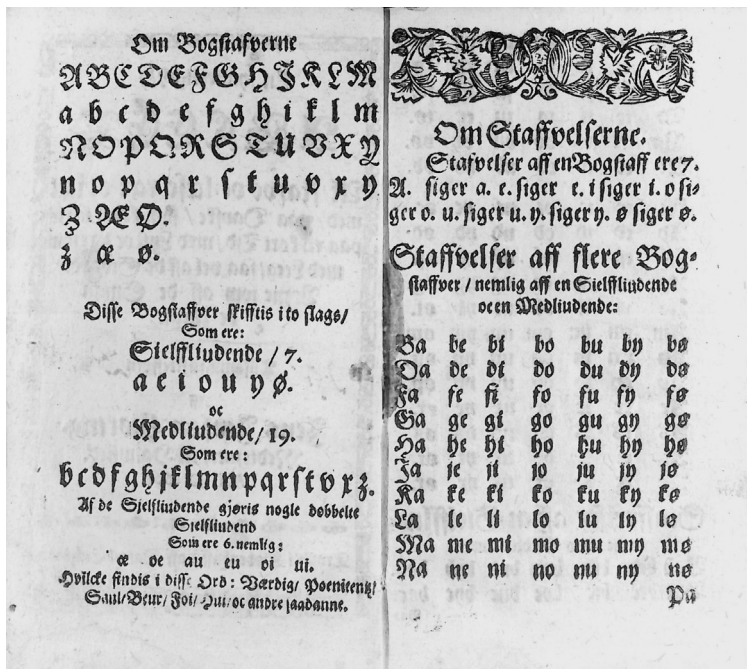 Om Bogstafverne
A B C D E F G H J K L M
a b c d e f g h i k l m
N O P Q R S T U V X Y
n o p q r s t u v x y
Z Æ Ø.
z æ ø.
Disse Bogstaffver skifftis i to slags/
Som ere:
Sielffliudende / 7.
a e i o u y ø.
oc
Medliudende/ 19.
Som ere:
b c d f g h j k l m n p q r s t v x z.
Af de Sielfliudende gjøris nogle dobbelte
Sielfliudend
Som ere 6. nemlig:
æ oe au eu oi ui.
Hvilcke findis i disse Ord: Værdig/ Poenitentz/
Saul/ Beur/ Foi/ Hui/ oc andre saadanne.
Om Staffvelserne.
Stafvelser aff en Bogstaff ere 7.
A. siger a. e. siger e. i siger i. o si-
ger o. u. siger u. y. siger y. ø siger ø.
Staffvelser aff flere Bog-
staffver / nemlig aff en Sielffliudende
oc en Medliudende:
Ba be bi bo bu by bø
Da de di do du dy dø
Fa fe fi fo fu fy fø
Ga ge gi go gu gy gø
Ha he hi ho hu hy hø
Ja je ji jo ju jy jø
Ka ke ki ko ku ky kø
La le li lo lu ly lø
Ma me mi mo mu my mø
Na ne ni no nu ny nø
Pa